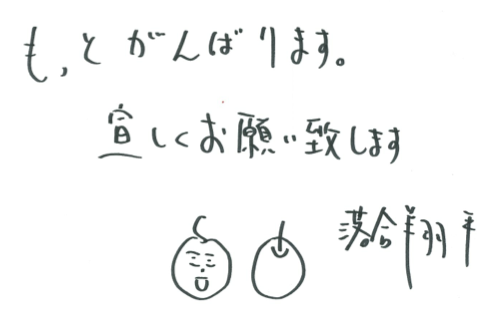 もっとがんばります。
宜しくお願い致します
落合翔平